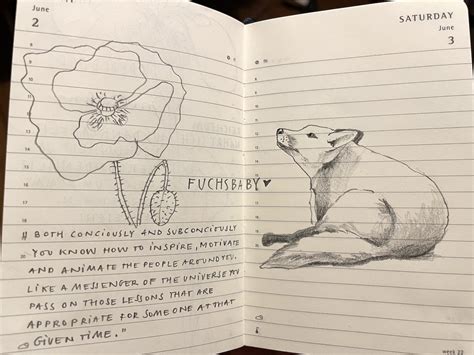 June
2
SATURDAY
June
3
FUCHSBABY ♥
" BOTH CONCIOUSLY AND SUBCONCIOUSLY
YOU KNOW HOW TO INSPIRE, MOTIVATE
AND ANIMATE THE PEOPLE AROUND YOU.
LIKE A MESSENGER OF THE UNIVERSE YOU
PASS ON THOSE LESSONS THAT ARE
APPROPRIATE FOR SOMEONE AT THAT
GIVEN TIME."
week 22